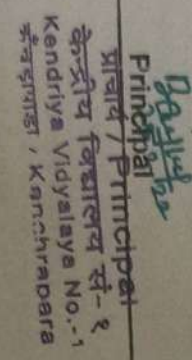 Principal
प्राचार्य / Principal
केन्द्रीय विद्यालय सं-१
Kendriya Vidyalaya No.-1
काँचड़ापाड़ा, Kanchrapara